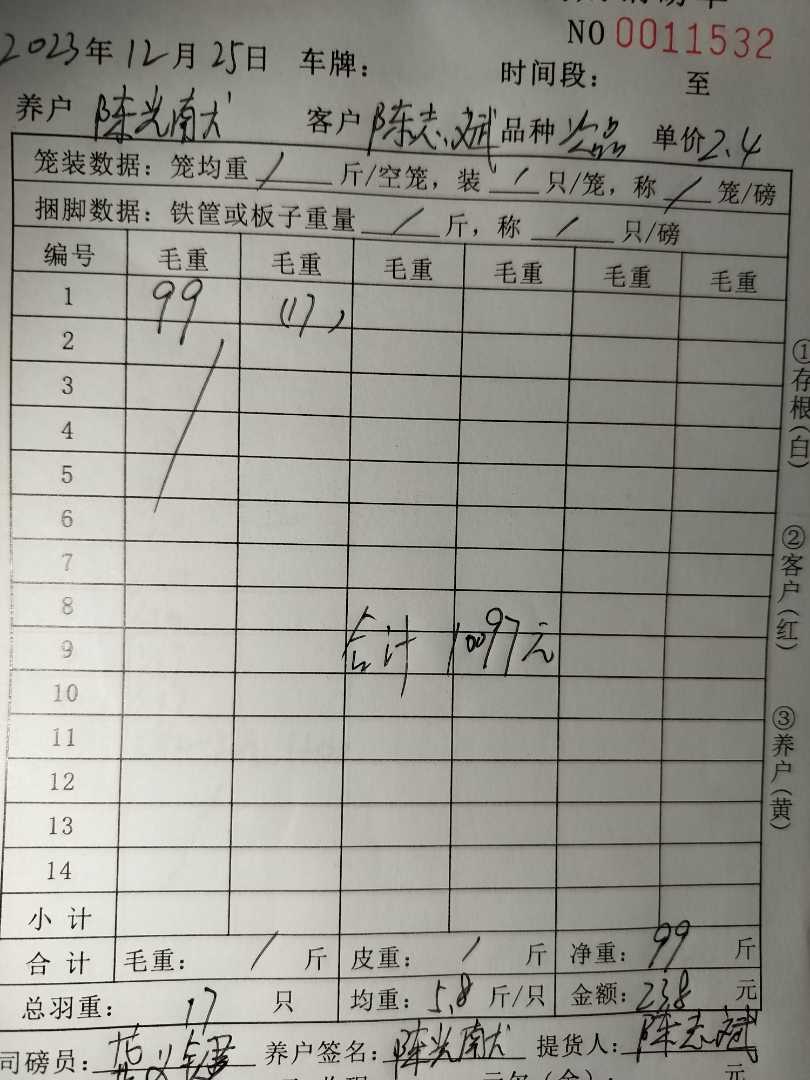 NO 0011532
2023年12月25日 车牌: 时间段: 至
养户 陈光南犬 客户 陈志斌 品种 次品 单价2.4
笼装数据: 笼均重 / 斤/空笼, 装 / 只/笼, 称 / 笼/磅
捆脚数据: 铁筐或板子重量 / 斤, 称 / 只/磅
编号 毛重 毛重 毛重 毛重 毛重 毛重
1 99 (17)
2
3
4
5
6
7
8
9 合计 1097元
10
11
12
13
14
小计
合计 毛重: / 斤 皮重: / 斤 净重: 99 斤
总羽重: 17 只 均重: 5.8 斤/只 金额: 238 元
司磅员: 养户签名: 陈光南犬 提货人: 陈志斌
①存根(白)
②客户(红)
③养户(黄)